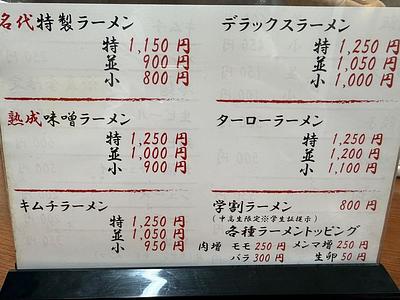 名代特製ラーメン
特 1,150 円
並 900 円
小 800 円
熟成味噌ラーメン
特 1,250 円
並 1,000 円
小 900 円
キムチラーメン
特 1,250 円
並 1,050 円
小 950 円
デラックスラーメン
特 1,250 円
並 1,050 円
小 1,000 円
ターローラーメン
特 1,250 円
並 1,200 円
小 1,100 円
学割ラーメン 800 円
(中高生限定※学生証提示)
各種ラーメントッピング
肉増 モモ 250 円 メンマ増 250 円
バラ 300 円 生卵 50 円